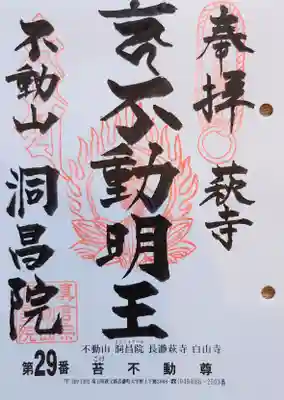 奉拝 萩寺
不動明王
不動山 洞昌院
不動山 洞昌院 長瀞萩寺 白山寺
第29番 苔不動尊
こけ